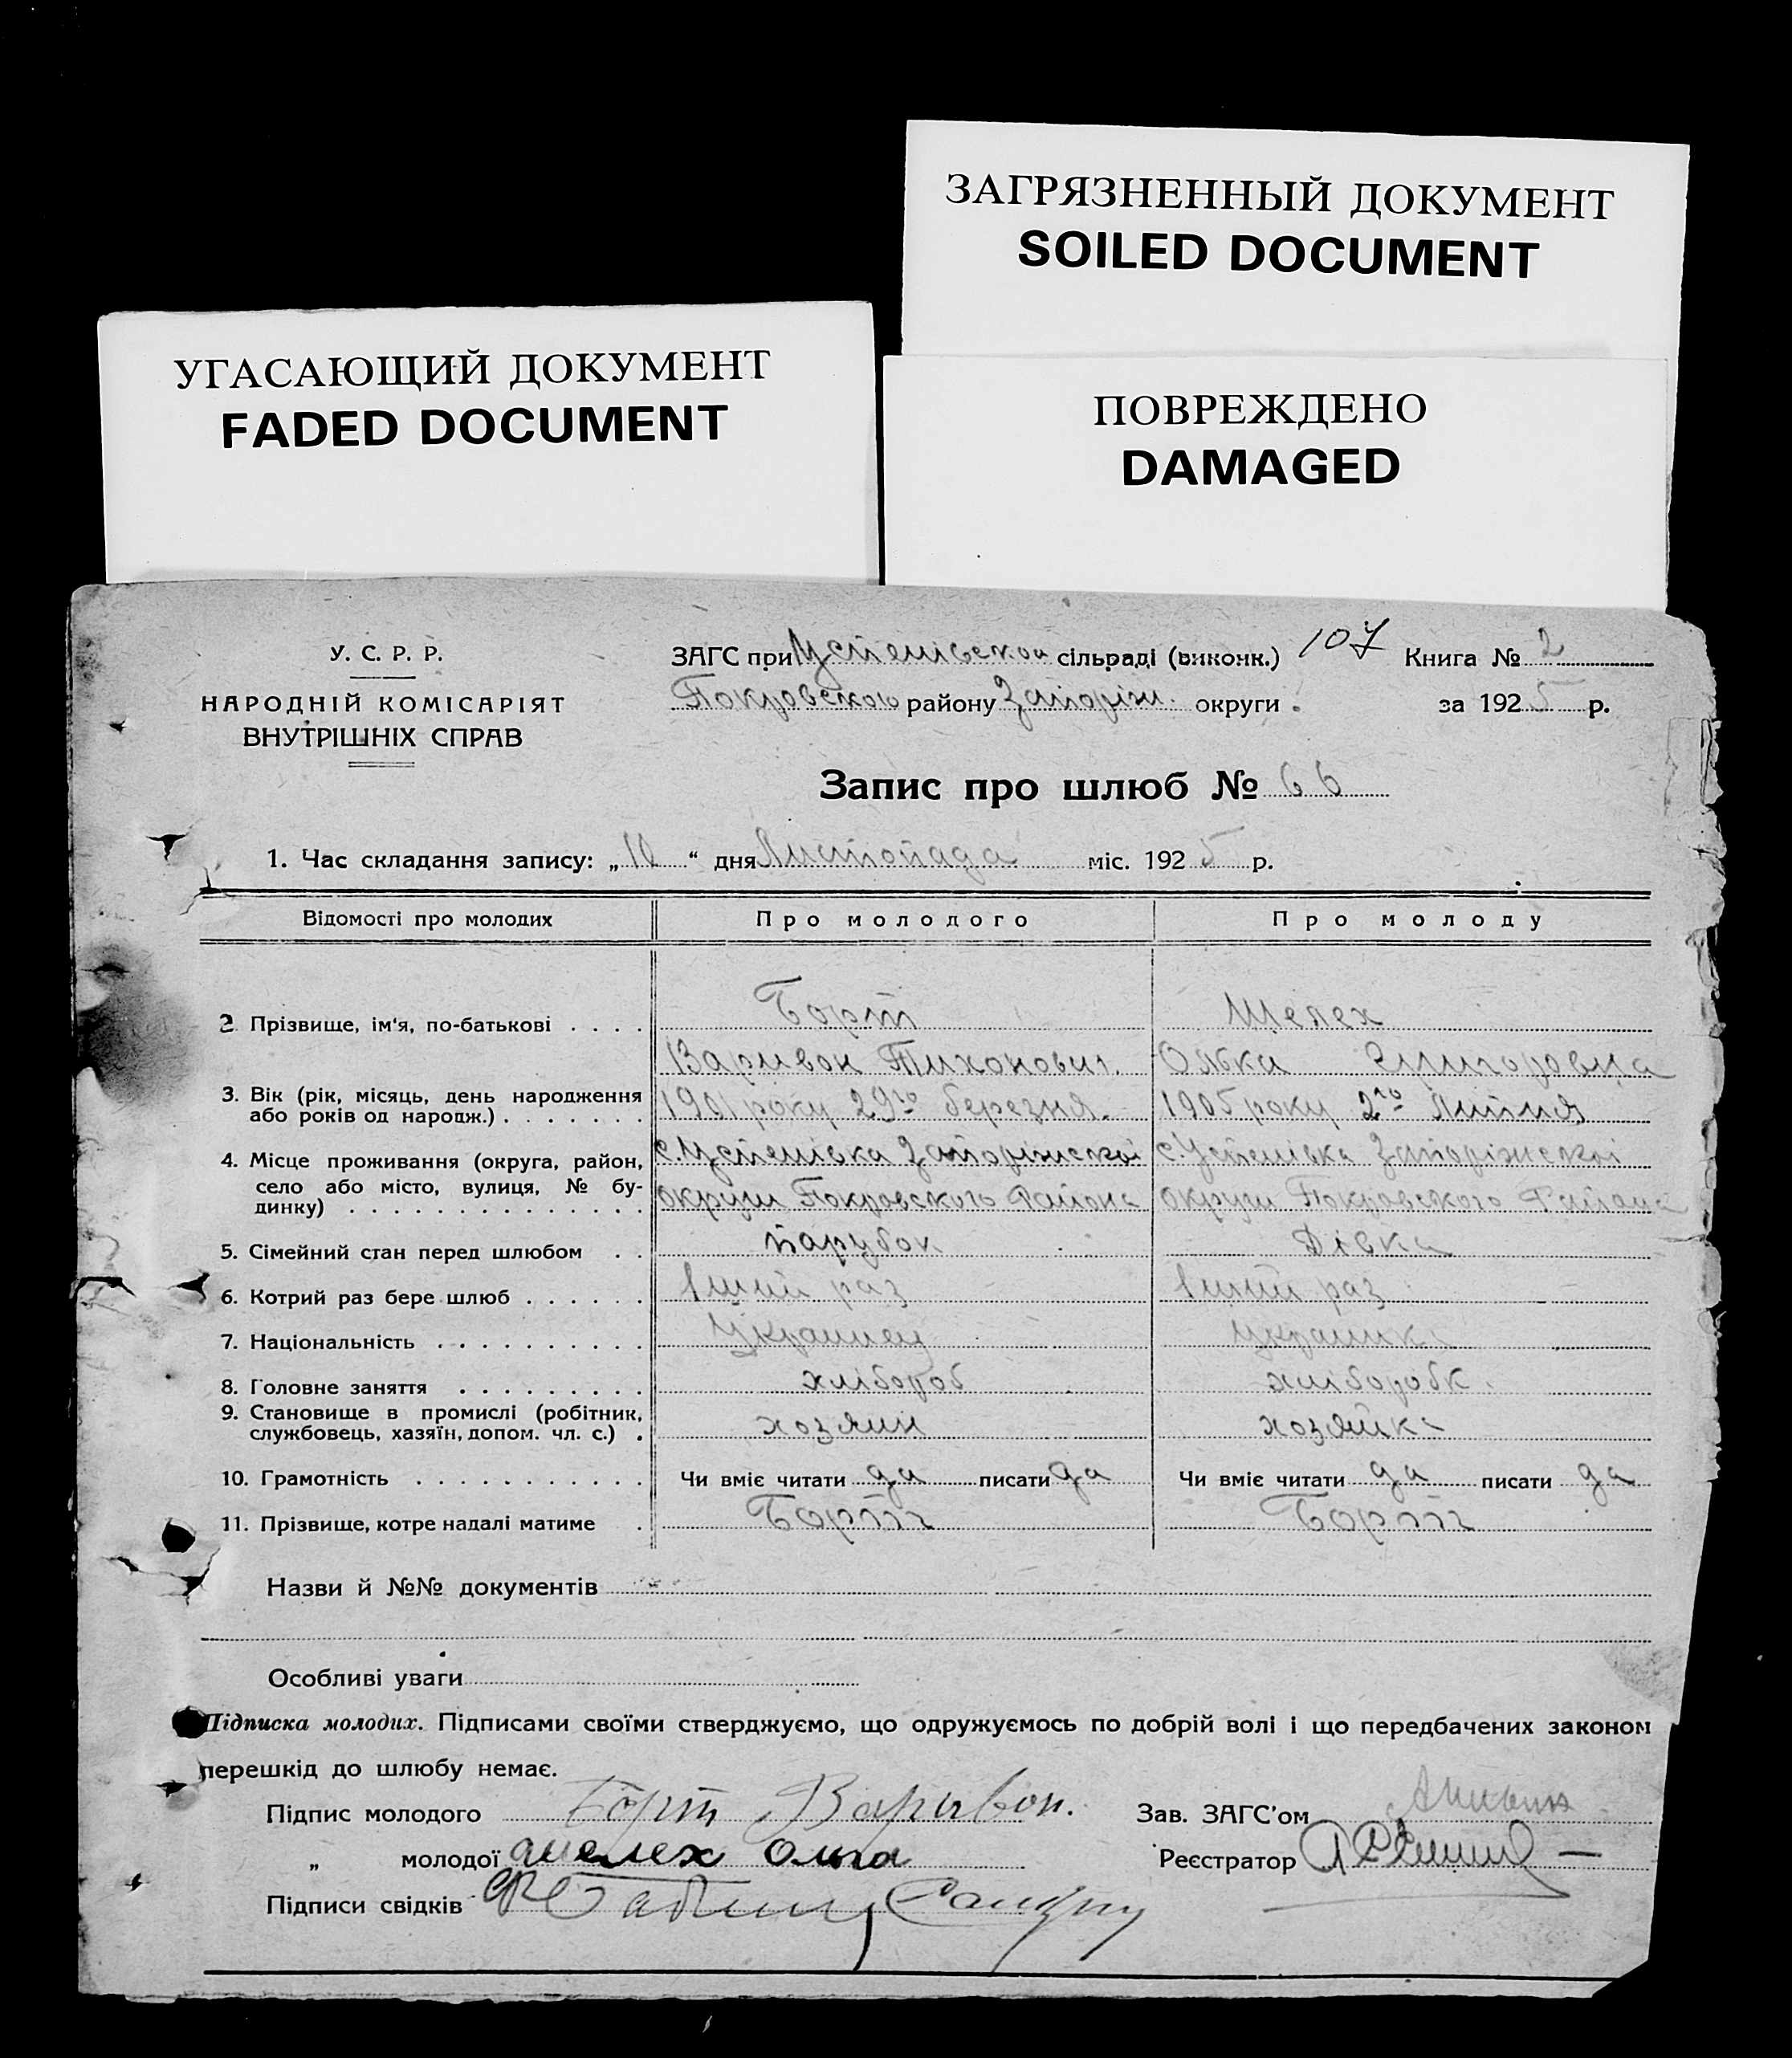 ЗАГРЯЗНЕННЫЙ ДОКУМЕНТ
SOILED DOCUMENT
УГАСАЮЩИЙ ДОКУМЕНТ
FADED DOCUMENT
ПОВРЕЖДЕНО
DAMAGED
У. С. Р. Р.
НАРОДНІЙ КОМІСАРІЯТ
ВНУТРІШНІХ СПРАВ
ЗАГС при Успенівской сільраді (виконк.) 107 Книга № 2
Покровського району Запоріж. округи. за 1925 р.
Запис про шлюб № 66
1. Час складання запису: „10“ дня Листопада міс. 1925 р.
Відомості про молодих Про молодого Про молоду
Борт Шелех
2. Прізвище, ім'я, по-батькові
Варивон Тихонович. Олька Григоровна
3. Вік (рік, місяць, день народження 1901 року 29го березня. 1905 року 2го Липня
або років од народж.)
4. Місце проживання (округа, район, с. Успенівка Запоріжскоі с. Успенівка Запоріжскоі
село або місто, вулиця, № бу- округи Покровского Района округи Покровского Района
динку)
5. Сімейний стан перед шлюбом парубок Дівка
6. Котрий раз бере шлюб 1ший раз 1ший раз
7. Національність Украинец Украинка
8. Головне заняття хлібороб хліборобк.
9. Становище в промислі (робітник, хозяин хозяйка
службовець, хазяїн, допом. чл. с.)
10. Грамотність Чи вміє читати да писати да Чи вміє читати да писати да
11. Прізвище, котре надалі матиме Борт Борт
Назви й №№ документів
Особливі уваги
Підписка молодих. Підписами своїми стверджуємо, що одружуємось по добрій волі і що передбачених законом
перешкід до шлюбу немає.
Підпис молодого Борт Варивон. Зав. ЗАГС'ом
„ молодої Шелех Ольга Реєстратор
Підписи свідків